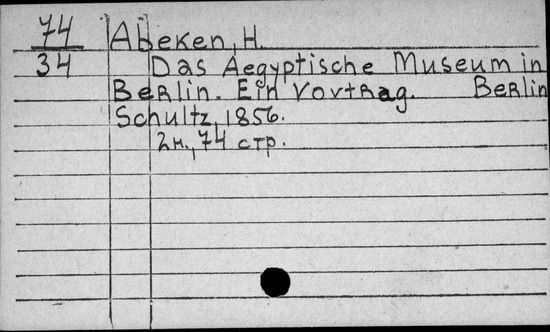 74 Abeken, H.
34 Das Aegyptische Museum in
Berlin. Ein Vortrag. Berlin
Schultz, 1856.
2н., 74 стр.